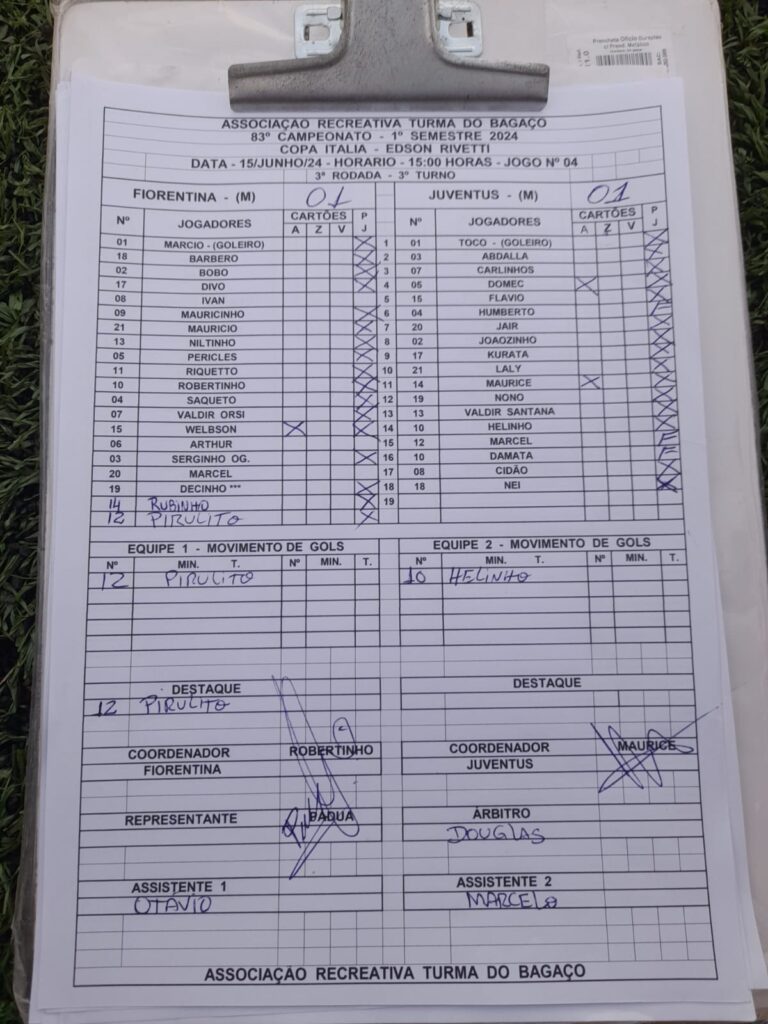 Prancheta Ofício Duraplac
c/ Prend. Metálico
ASSOCIAÇÃO RECREATIVA TURMA DO BAGAÇO
83º CAMPEONATO - 1º SEMESTRE 2024
COPA ITALIA - EDSON RIVETTI
DATA - 15/JUNHO/24 - HORARIO - 15:00 HORAS - JOGO Nº 04
3ª RODADA - 3º TURNO
FIORENTINA - (M) 01 JUVENTUS - (M) 01
Nº JOGADORES CARTÕES P Nº JOGADORES CARTÕES P
A Z V J A Z V J
01 MARCIO - (GOLEIRO) X 1 01 TOCO - (GOLEIRO) X
18 BARBERO X 2 03 ABDALLA X
02 BOBO X 3 07 CARLINHOS X
17 DIVO X 4 05 DOMEC X X
08 IVAN 5 15 FLAVIO X
09 MAURICINHO X 6 04 HUMBERTO F
21 MAURICIO X 7 20 JAIR X
13 NILTINHO X 8 02 JOAOZINHO X
05 PERICLES X 9 17 KURATA X
11 RIQUETTO X 10 21 LALY X
10 ROBERTINHO X 11 14 MAURICE X X
04 SAQUETO X 12 19 NONO X
07 VALDIR ORSI X 13 13 VALDIR SANTANA X
15 WELBSON X X 14 10 HELINHO X
06 ARTHUR 15 12 MARCEL F
03 SERGINHO OG. X 16 10 DAMATA F
20 MARCEL 17 08 CIDÃO X
19 DECINHO *** X 18 18 NEI X
14 RUBINHO X 19
12 PIRULITO X
EQUIPE 1 - MOVIMENTO DE GOLS EQUIPE 2 - MOVIMENTO DE GOLS
Nº MIN. T. Nº MIN. T. Nº MIN. T. Nº MIN. T.
12 PIRULITO 10 HELINHO
DESTAQUE DESTAQUE
12 PIRULITO
COORDENADOR ROBERTINHO COORDENADOR MAURICE
FIORENTINA JUVENTUS
REPRESENTANTE PADUA ÁRBITRO
DOUGLAS
ASSISTENTE 1 ASSISTENTE 2
OTÁVIO MARCELO
ASSOCIAÇÃO RECREATIVA TURMA DO BAGAÇO